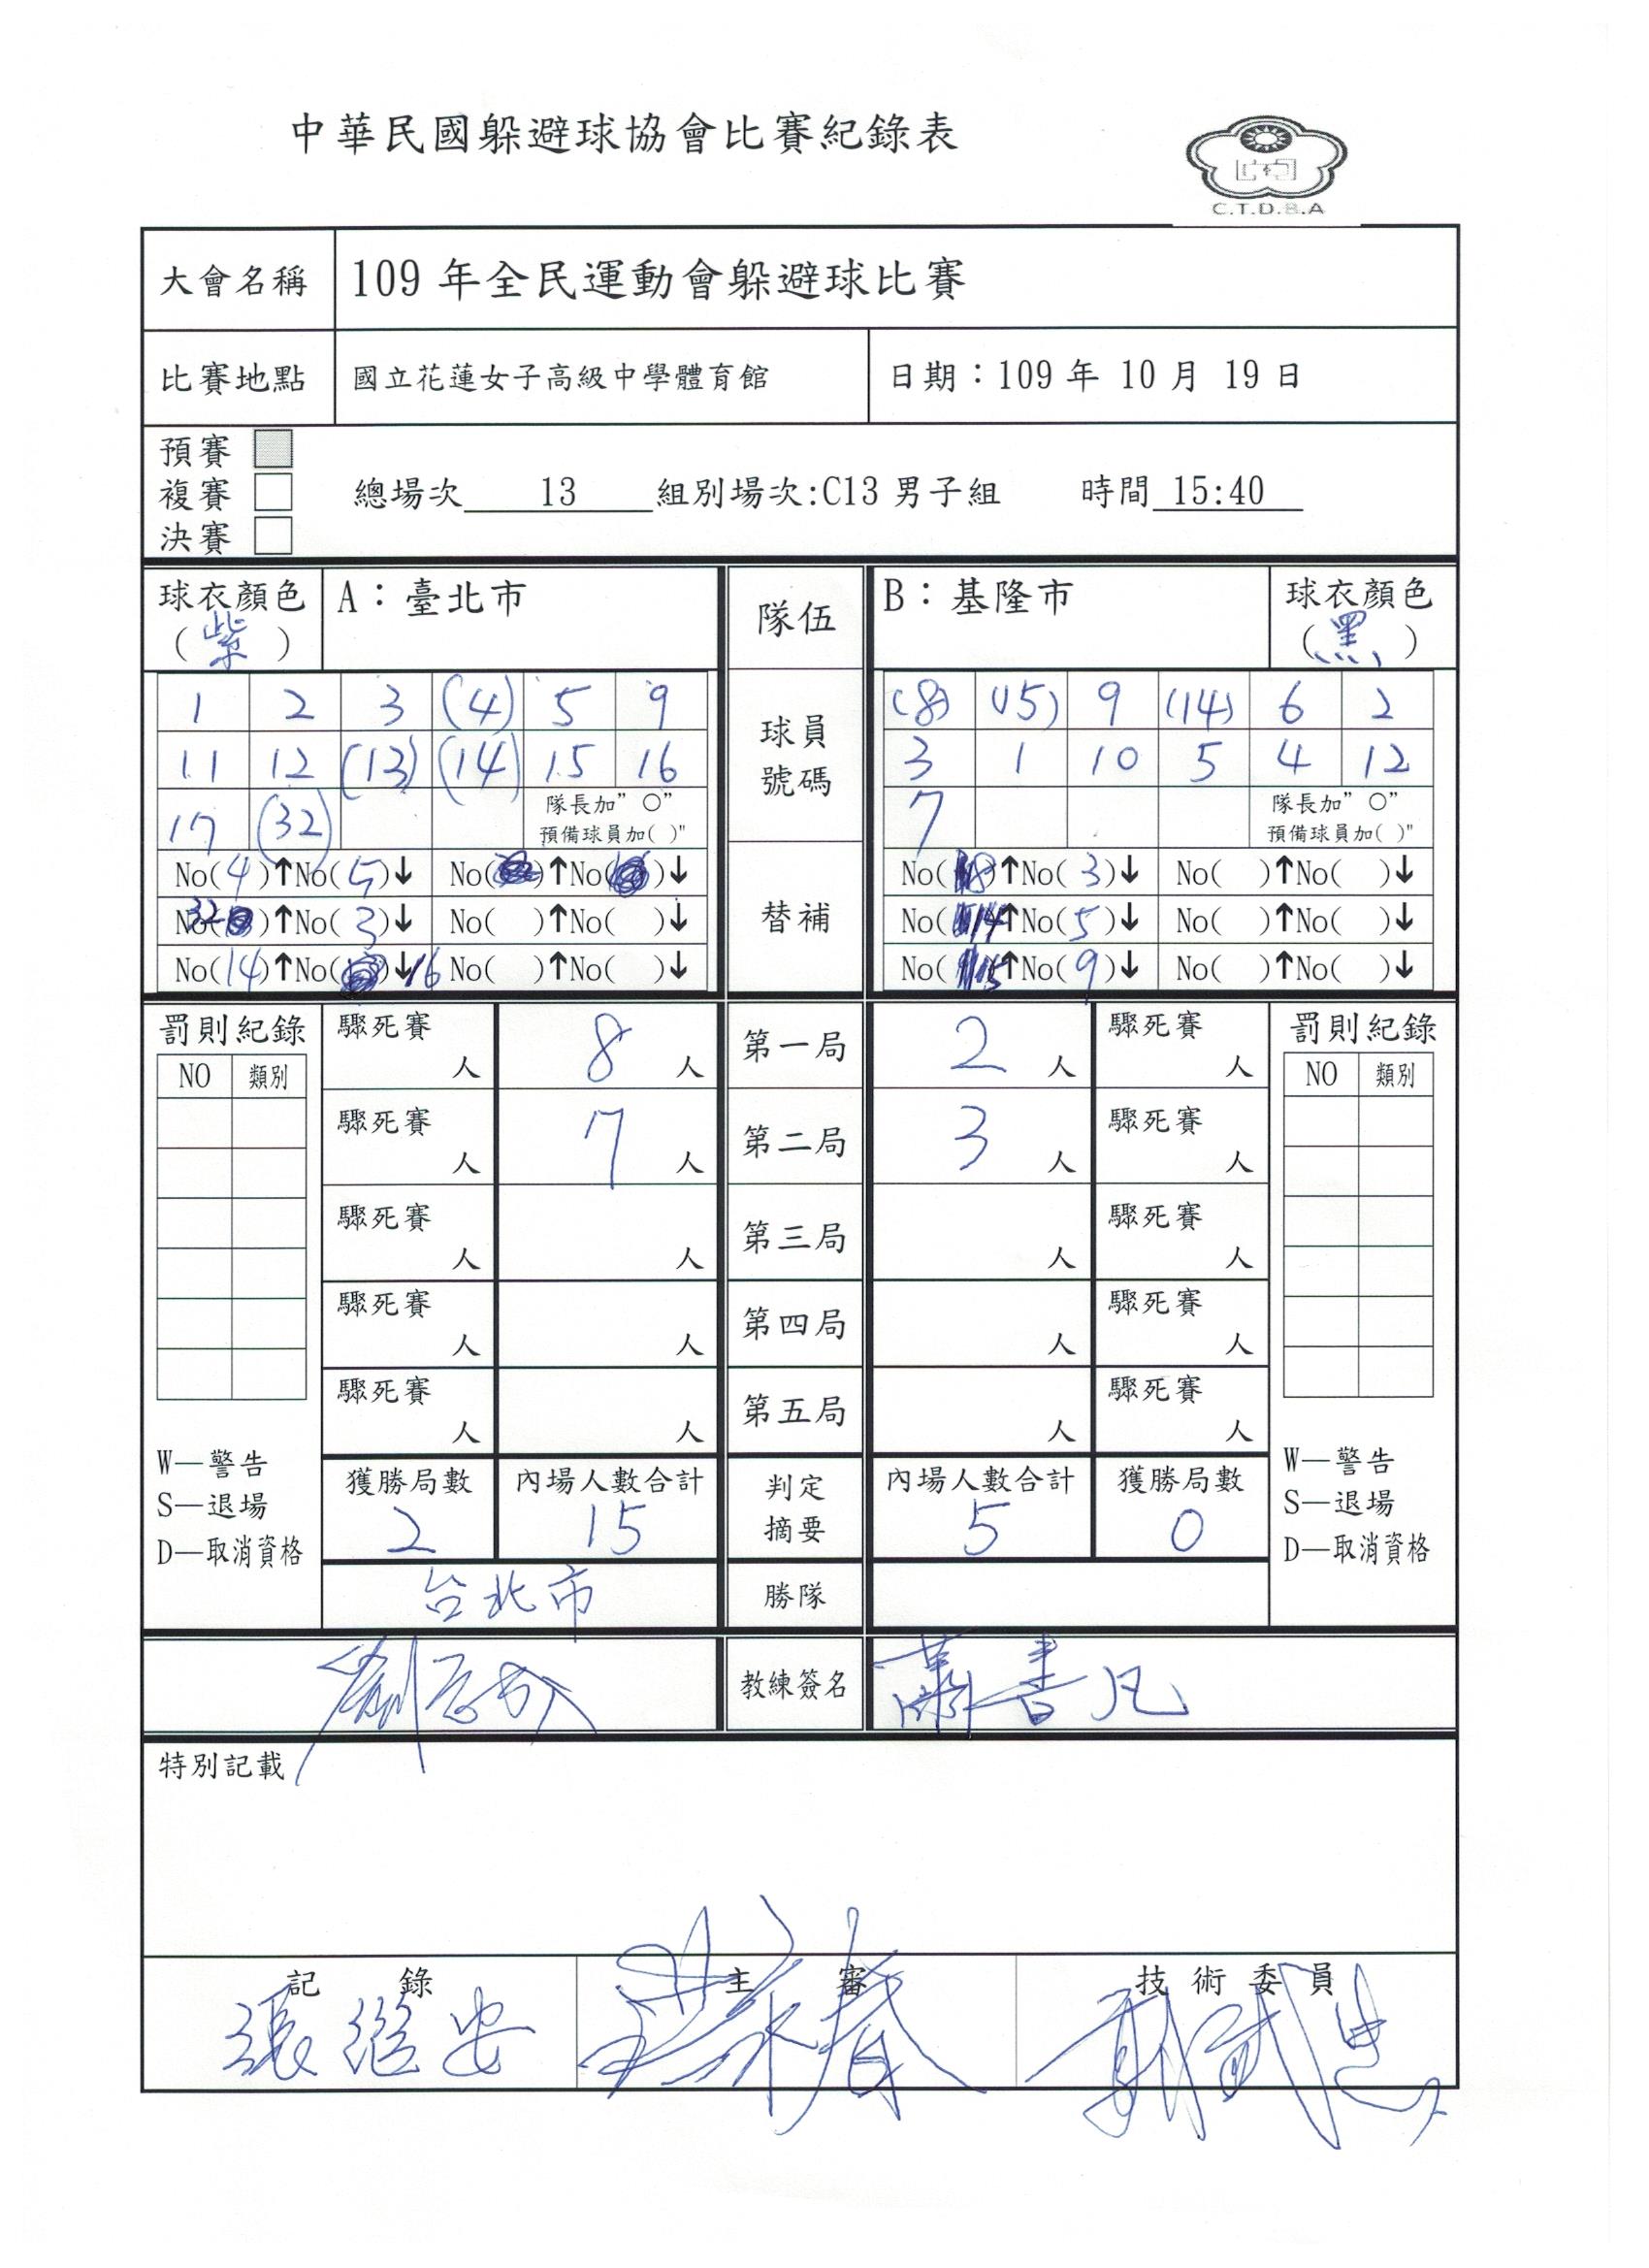 中華民國躲避球協會比賽紀錄表
C.T.D.B.A
大會名稱 109 年全民運動會躲避球比賽
比賽地點 國立花蓮女子高級中學體育館 日期：109 年 10 月 19 日
預賽
複賽 總場次 13 組別場次:C13 男子組 時間 15:40
決賽
球衣顏色 A：臺北市 隊伍 B：基隆市 球衣顏色
(紫) (黑)
1 2 3 (4) 5 9 球員 (8) (15) 9 (14) 6 2
11 12 (13) (14) 15 16 號碼 3 1 10 5 4 12
17 (32) 隊長加”○” 7 隊長加”○”
預備球員加( )" 預備球員加( )"
No(4)↑No(5)↓ No( )↑No( )↓ 替補 No(8)↑No(3)↓ No( )↑No( )↓
No(32)↑No(3)↓ No( )↑No( )↓ No(14)↑No(5)↓ No( )↑No( )↓
No(14)↑No( )↓16 No( )↑No( )↓ No(15)↑No(9)↓ No( )↑No( )↓
罰則紀錄 驟死賽 人 8 人 第一局 2 人 驟死賽 人 罰則紀錄
NO 類別 NO 類別
驟死賽 人 7 人 第二局 3 人 驟死賽 人
驟死賽 人 人 第三局 人 驟死賽 人
驟死賽 人 人 第四局 人 驟死賽 人
驟死賽 人 人 第五局 人 驟死賽 人
W—警告 獲勝局數 內場人數合計 判定 內場人數合計 獲勝局數 W—警告
S—退場 2 15 摘要 5 0 S—退場
D—取消資格 D—取消資格
台北市 勝隊
教練簽名 蕭書凡
特別記載
記 錄 主 審 技 術 委 員
張繼安